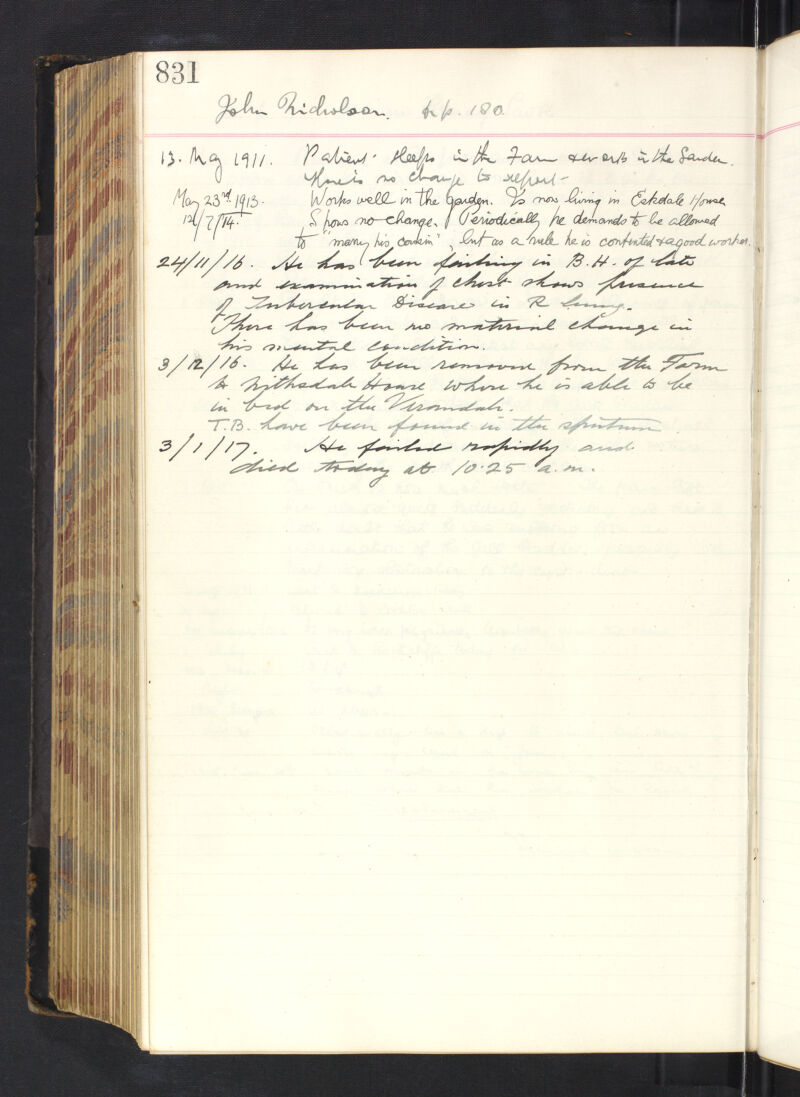 831
John Nicholson. fr p. 180
13. May 1911. Patient sleeps in the Farm & works in the Garden.
There is no change to report -
May 23rd 1913. Works well in the garden. Is now living in Eskdale House
12/7/14. Shows no change. Periodically he demands to be allowed
to "marry his cousin", but as a rule he is contented & a good worker.
24/11/16. He has been failing in B.H. of late
and examination of chest shows presence
of Tubercular Disease in R lung.
There has been no material change in
his mental condition.
3/12/16. He has been removed from the Farm
to Nithsdale House where he is able to be
in bed on the Verandah.
T.B. have been found in the sputum
3/1/17. He failed rapidly and
died today at 10.25 a.m.